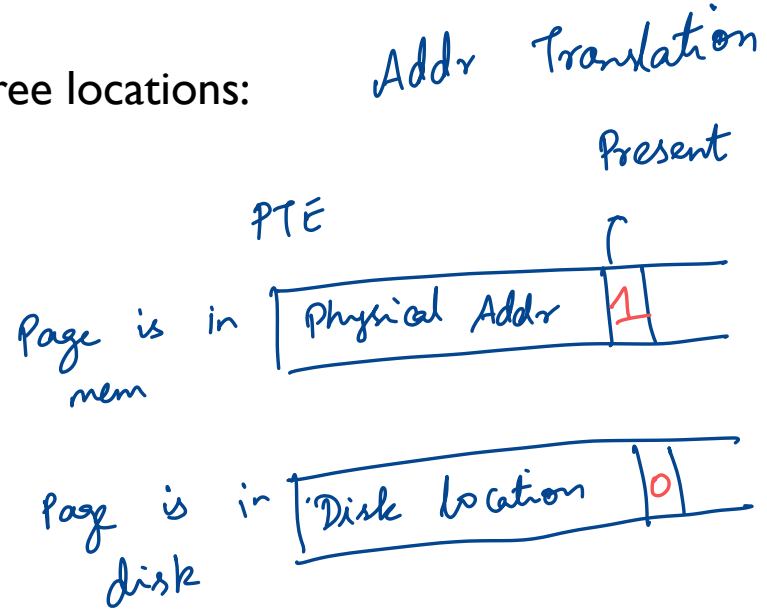 ree locations:
Addr Translation
Present
PTE
Page is in mem
Physical Addr 1
Page is in disk
Disk location 0